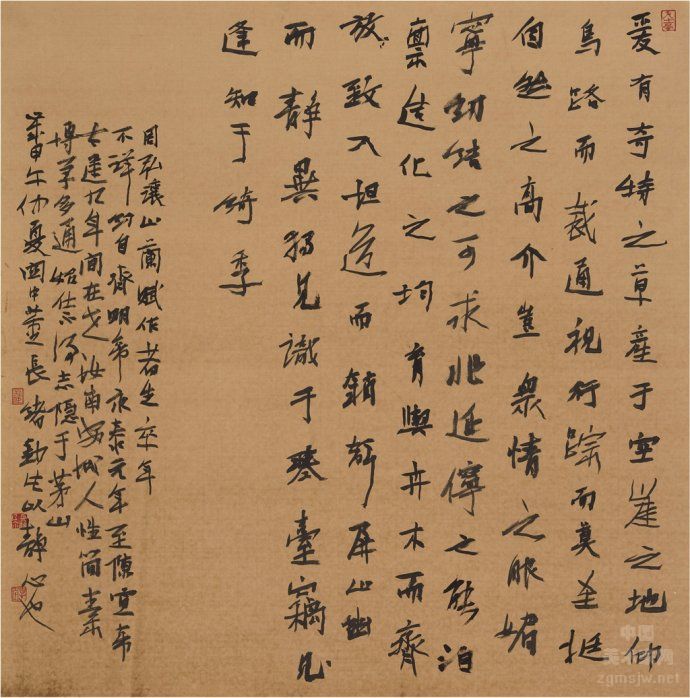 爰有奇特之草產于空崖之地仰
鳥路而裁通視行踪而莫至挺
自然之高介豈衆情之服媚
寧紉結之可求兆延佇之能泊
禀造化之均育與卉木而齊
放致入坦道而銷聲屏山幽
而靜異獨見識于琴臺竊見
逢知于綺季
周弘讓山蘭賦作者生卒年
不詳約自齊明帝永泰元年至陳宣帝
太建九年間在世汝南安城人性簡素
博學多通始仕不得志隱于茅山
甲午仲夏關中董長緒
以靜心也
中国
美术网
zgmsjw.net